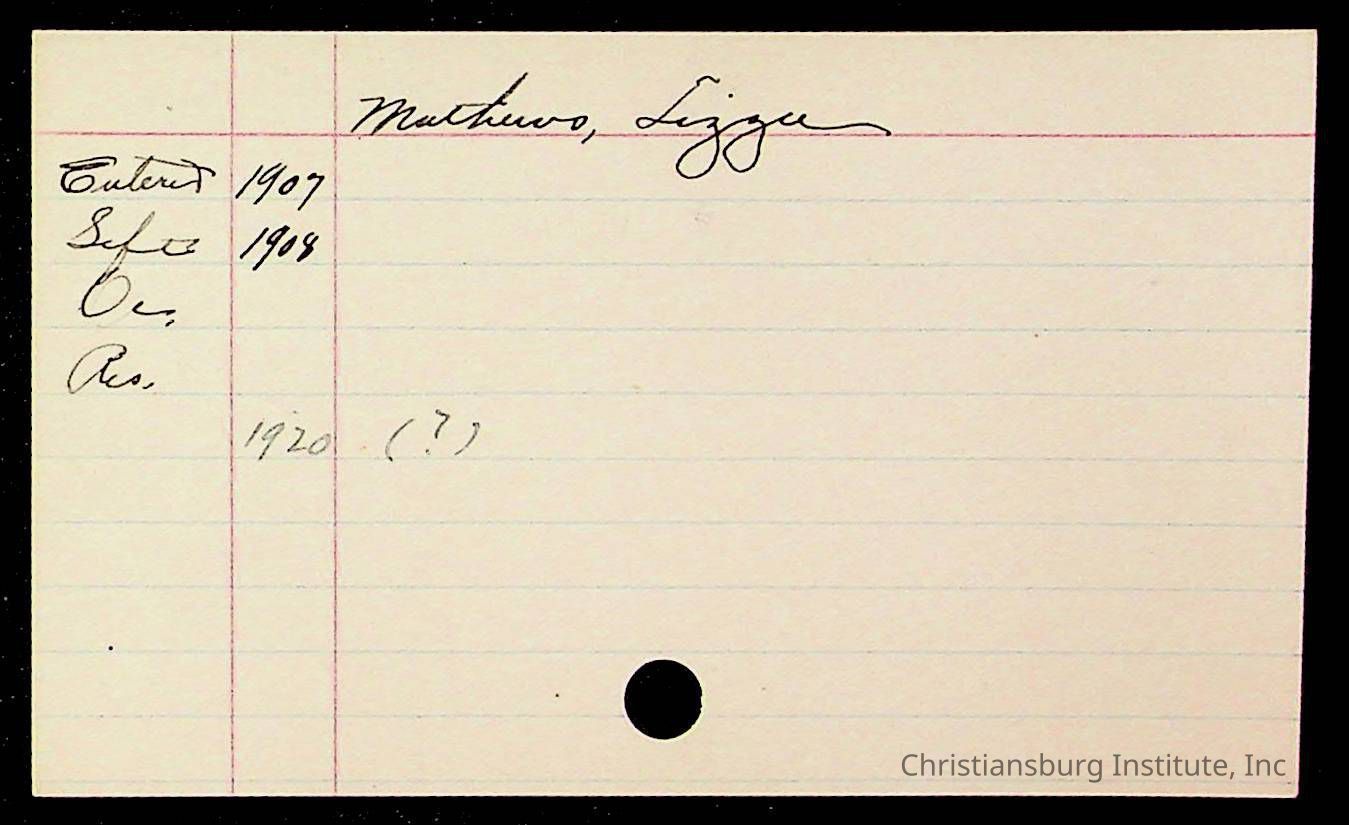 Mathews, Lizzie
Entered 1907
Left 1908
Oc.
Res.
1920 (?)
Christiansburg Institute, Inc